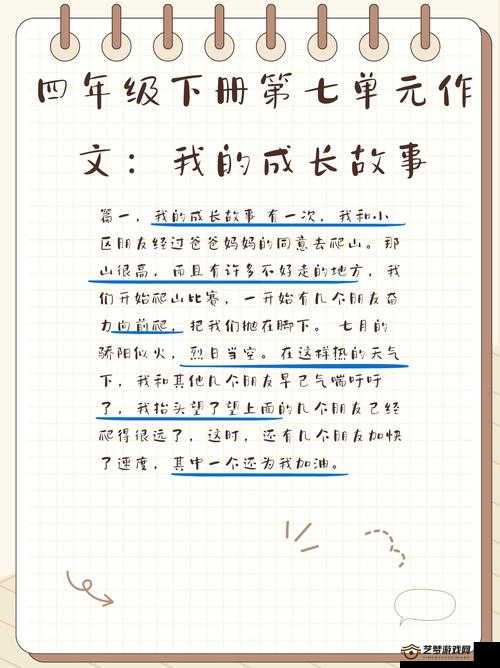 四年级下册第七单元作
文：我的成长故事
篇一，我的成长故事 有一次，我和小
区朋友经过爸爸妈妈的同意去爬山。那
山很高，而且有许多不好走的地方，我
们开始爬山比赛，一开始有几个朋友奋
力向前爬，把我们抛在脚下。七月的
骄阳似火，烈日当空。在这样热的天气
下，我和其他几个朋友早已气喘吁吁
了，我抬头望了望上面的几个朋友已经
爬得很远了，这时，还有几个朋友加快
了速度，其中一个还为我加油。
艺梦游戏网